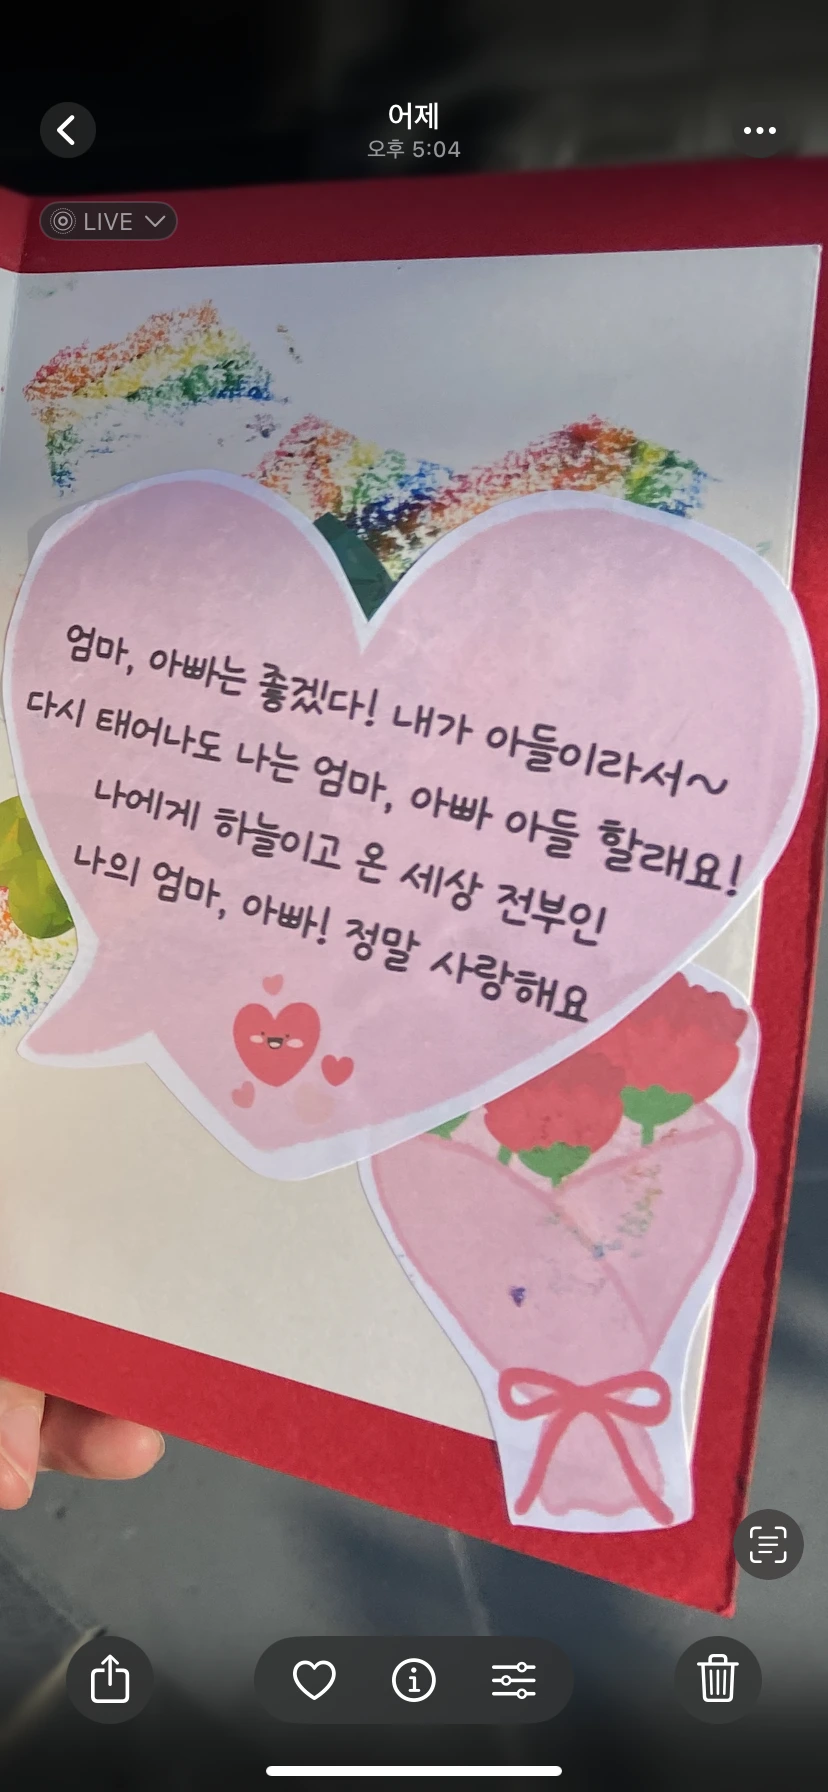 어제
오후 5:04
LIVE
엄마, 아빠는 좋겠다! 내가 아들이라서~
다시 태어나도 나는 엄마, 아빠 아들 할래요!
나에게 하늘이고 온 세상 전부인
나의 엄마, 아빠! 정말 사랑해요